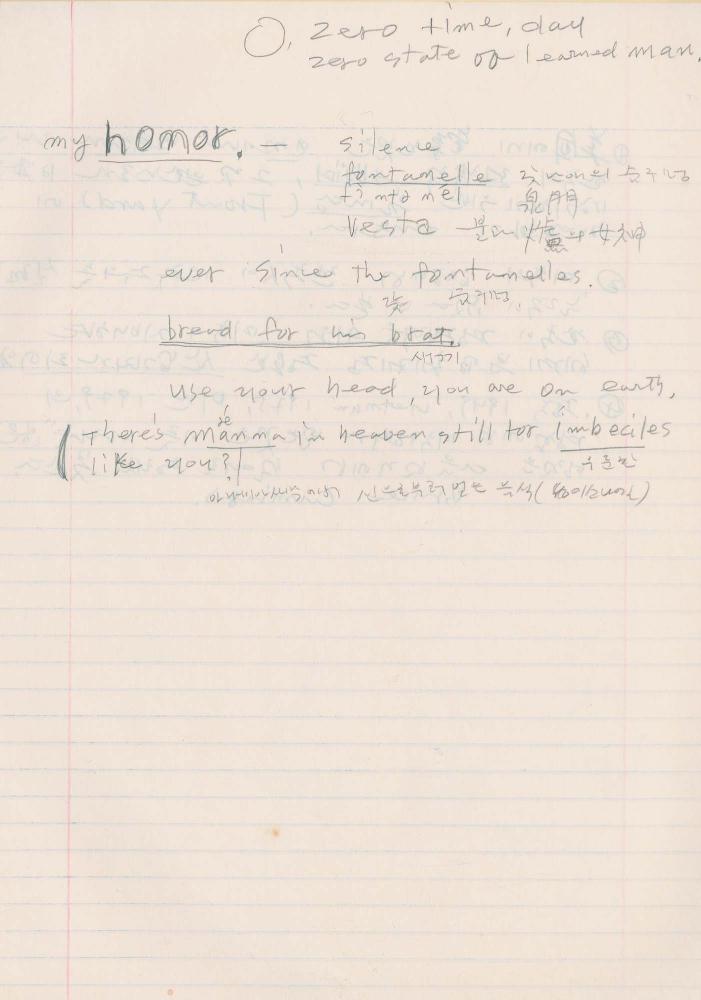 0, zero time, day
zero state of learned man.
my honor. — silence
fontanelle 갓난애의 숨구멍
fintanel 泉門
Vesta 불과 爐의 女神
ever since the fontanelles.
갓 숨구멍.
bread for his brat.
새끼
use your head, you are on earth,
There's manna in heaven still for Imbeciles
like you?
우둔한
신으로부터 받은 음식